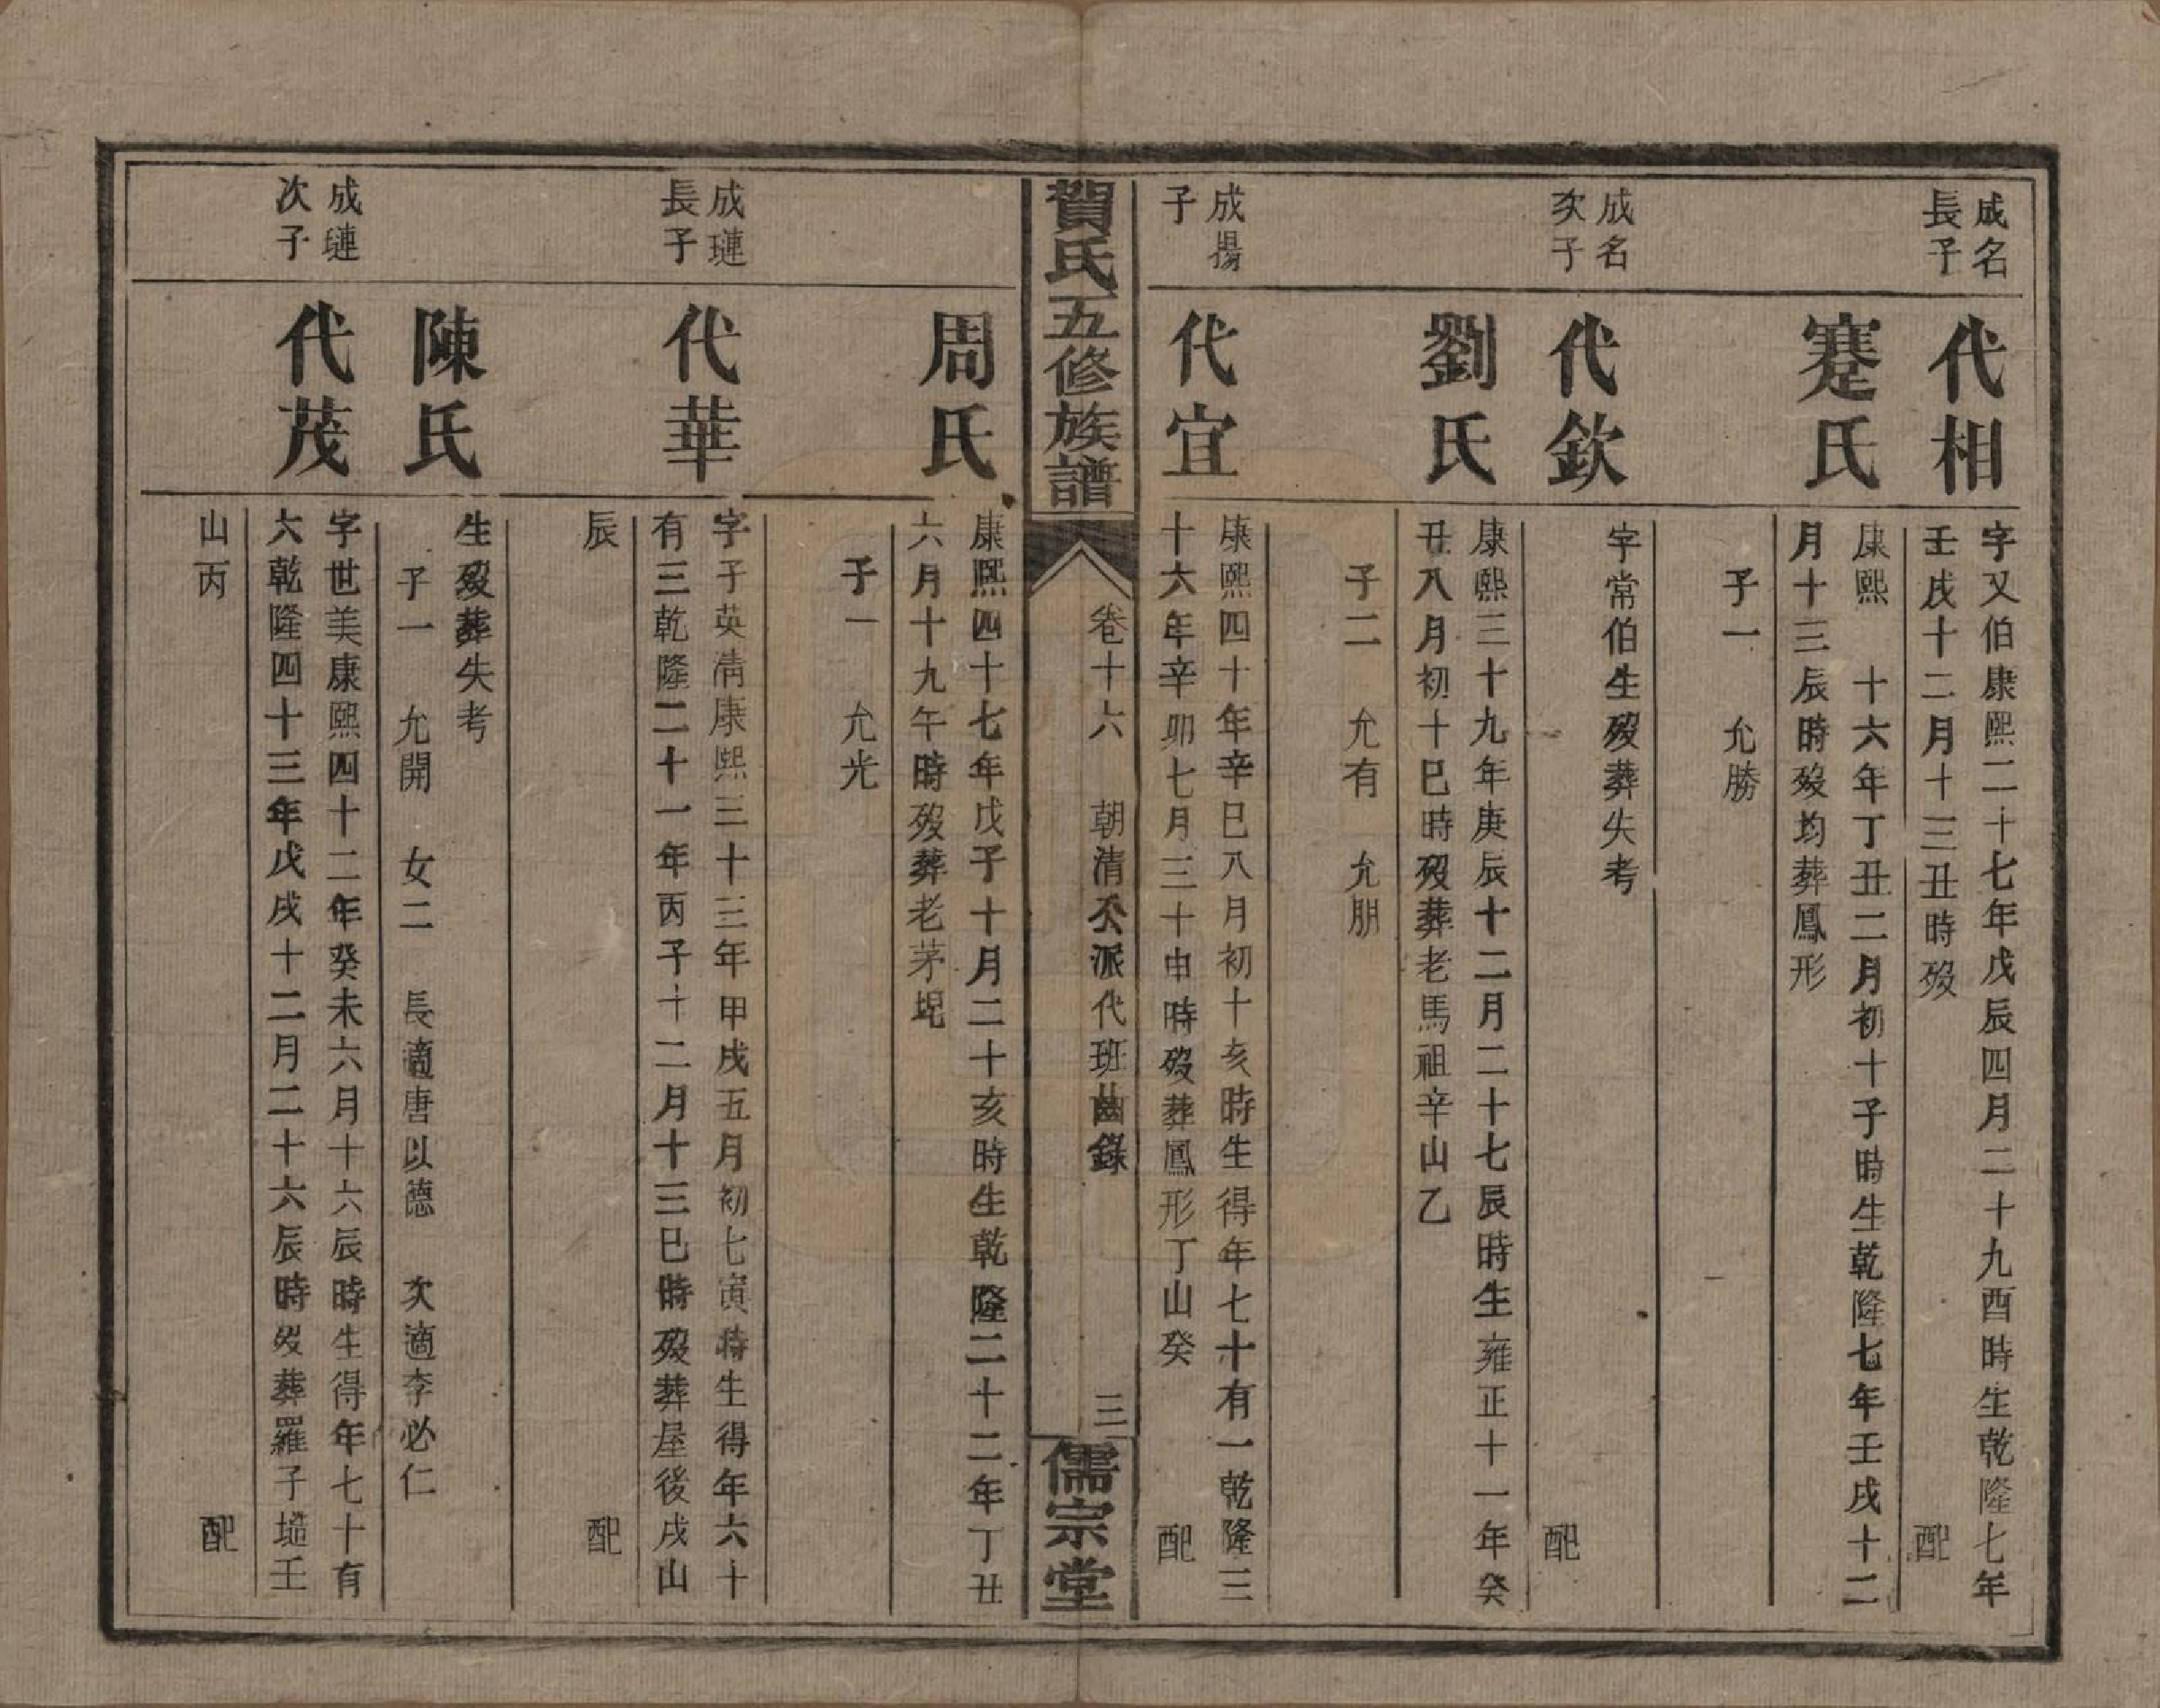 成名
長子
代相
字又伯康熙二十七年戊辰四月二十九酉時生乾隆七年
壬戌十二月十三丑時歿 配
蹇氏
康熙 十六年丁丑二月初十子時生乾隆七年壬戌十二
月十三辰時歿均葬鳳形
子一 允勝
成名
次子
代欽
字常伯生歿葬失考
配
劉氏
康熙三十九年庚辰十二月二十七辰時生雍正十一年癸
丑八月初十巳時歿葬老馬祖辛山乙
子二 允有 允朋
成揚
子
代宜
康熙四十年辛巳八月初十亥時生得年七十有一乾隆三
十六年辛卯七月三十申時歿葬鳳形丁山癸 配
賀氏五修族譜
卷十六 朝清公派代班齒錄 三
儒宗堂
周氏
康熙四十七年戊子十月二十亥時生乾隆二十二年丁丑
六月十九午時歿葬老茅垸
子一 允光
成璉
長子
代華
字子英清康熙三十三年甲戌五月初七寅時生得年六十
有三乾隆二十一年丙子十二月十三巳時歿葬屋後戌山
辰 配
陳氏
生歿葬失考
子一 允開 女二 長適唐以德 次適李必仁
成璉
次子
代茂
字世美康熙四十二年癸未六月十六辰時生得年七十有
六乾隆四十三年戊戌十二月二十六辰時歿葬羅子塏壬
山丙 配